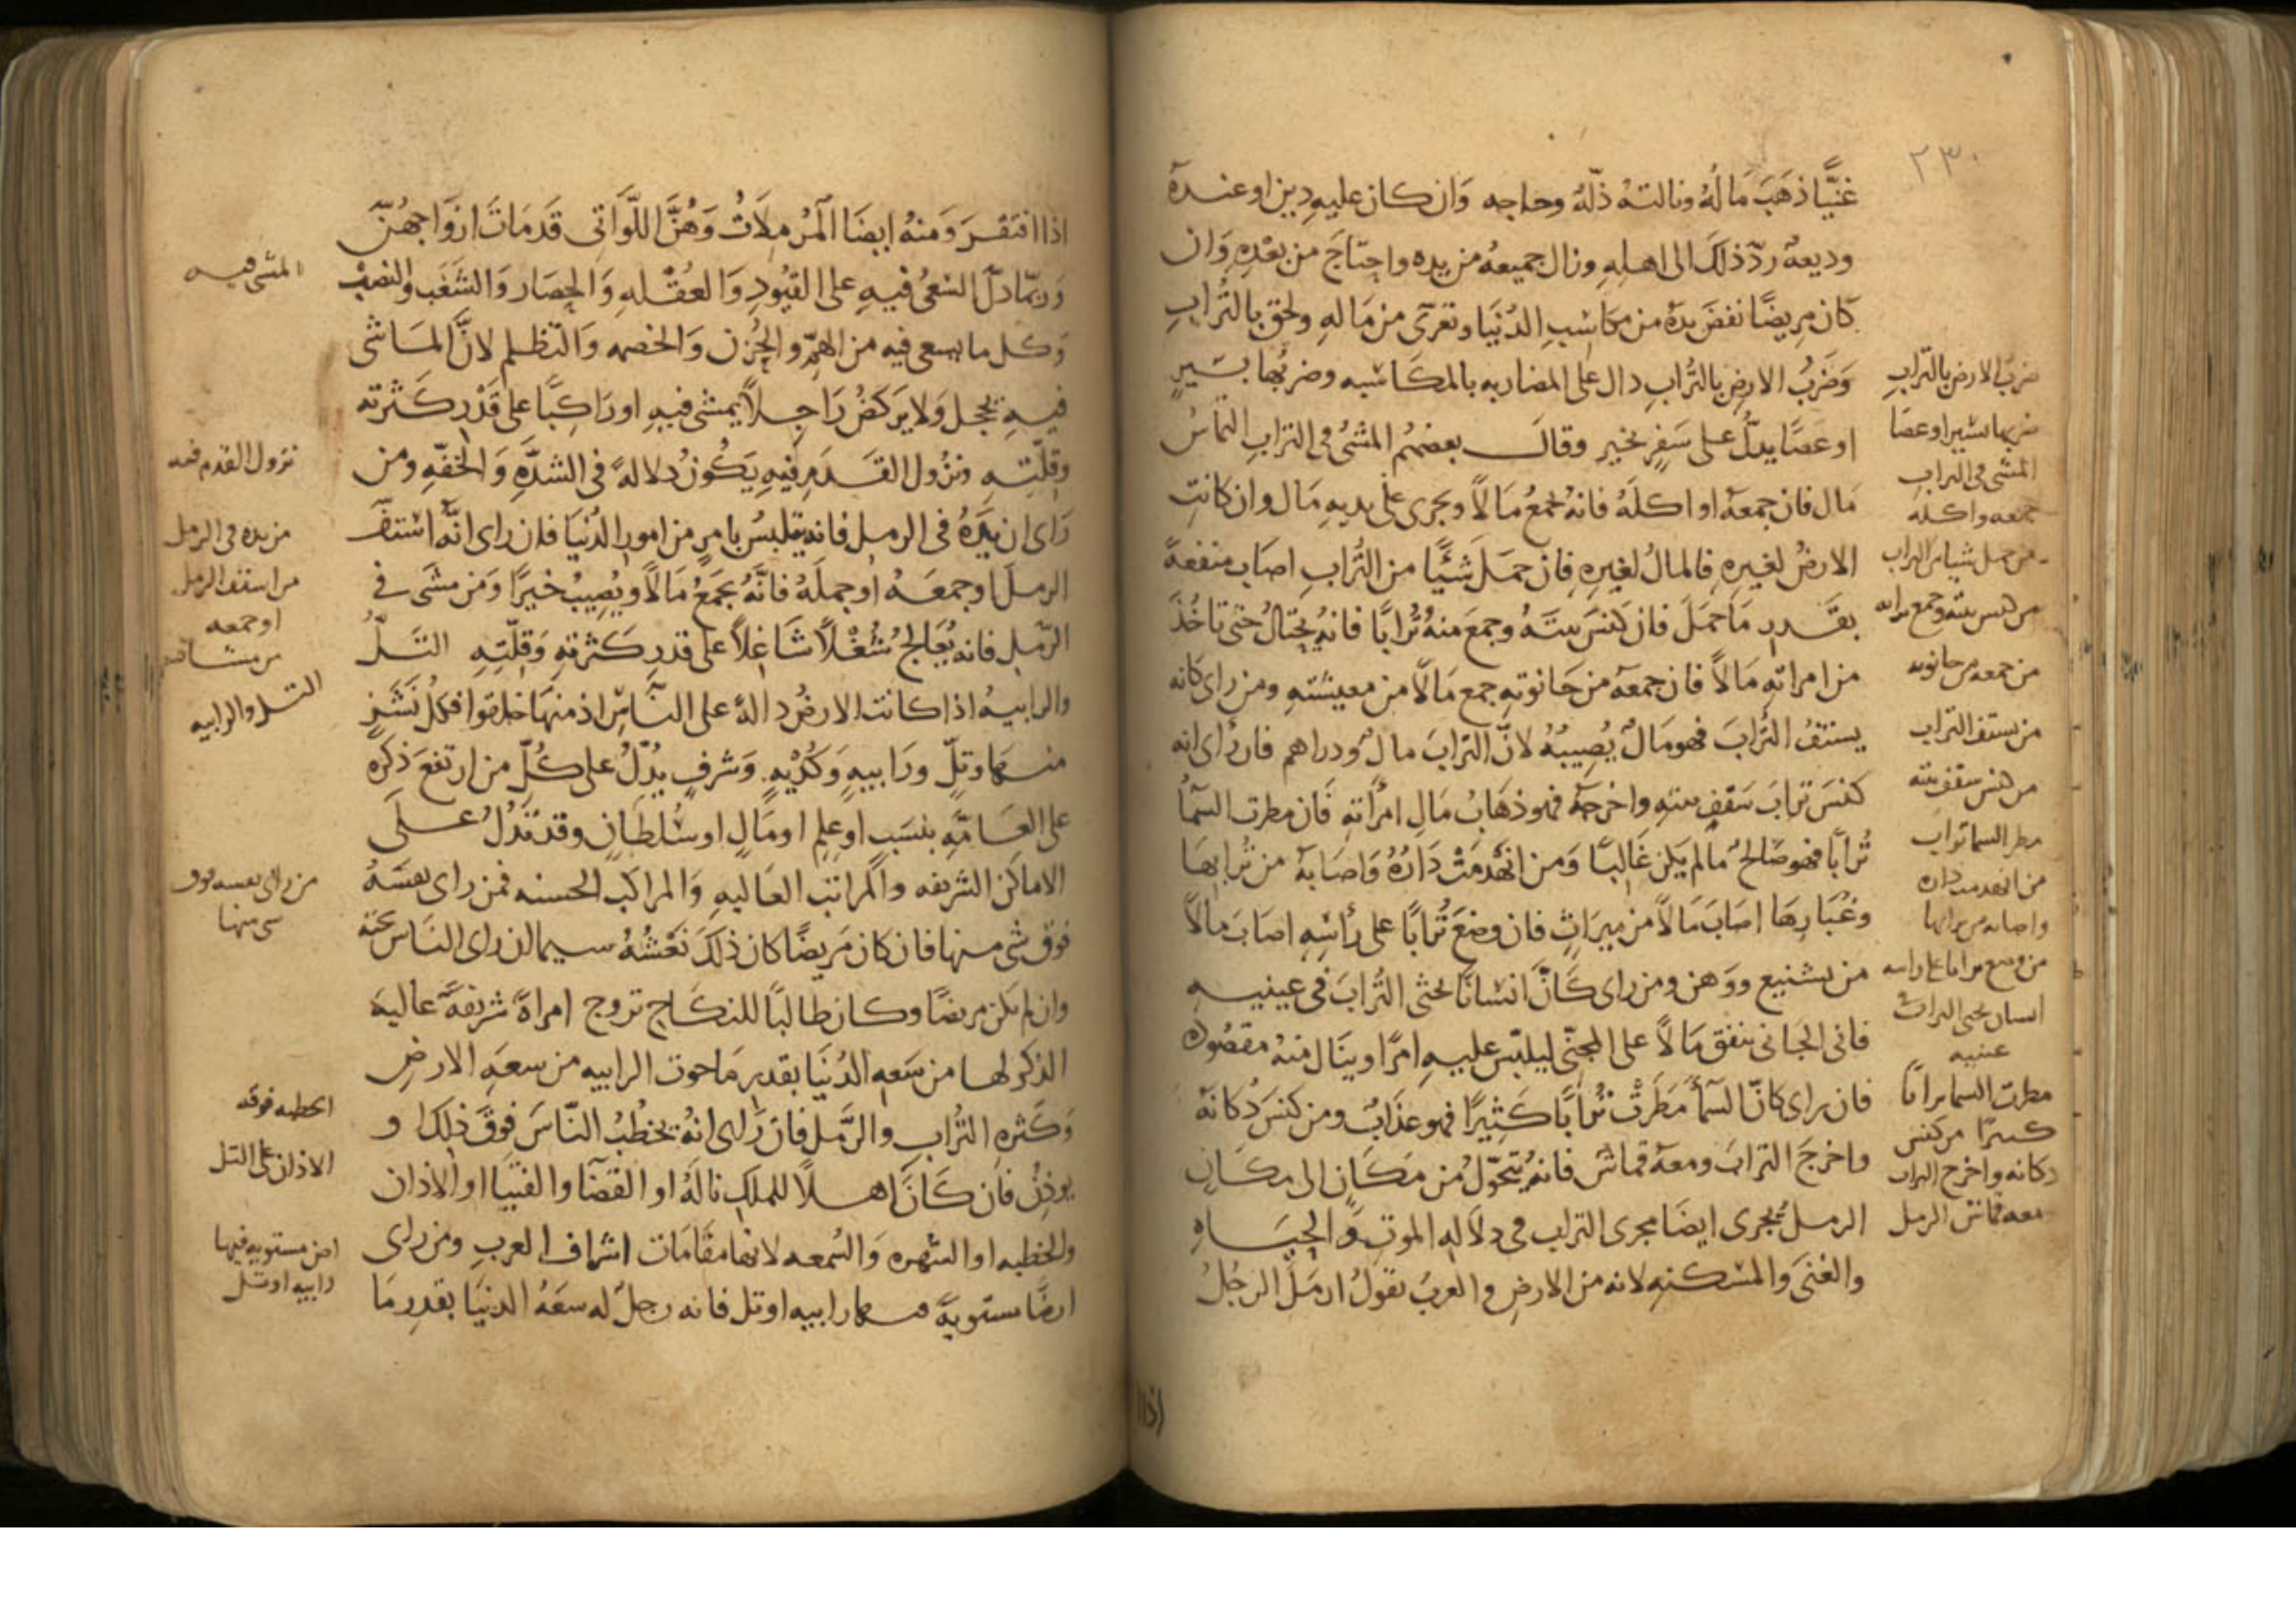 ٢٣٠
غنيًّا ذهَبَ مَالُهُ ونالتهُ ذلّهُ وحاجه وَان كان عليهِ دين او عندهُ
وديعهٌ ردّ ذلكَ الى اهلهِ وزال جميعهُ من يده واحتاجَ من بعْدِهِ وَان
كان مريضًا نفضَ يدهُ من مكاسبِ الدُنيَا وتعرّى من مَالهِ ولحق بالتُّرابِ
وَضَربُ الارضِ بالتُّرابِ دال على المضاربه بالمكاسبه وضربُها بسَيرٍ
او عصًا يدلُّ على سَفرٍ بخير وقالَ بعضهُم المشىُ فى الترابِ التماسُ
مَال فان جمعهُ او اكلَهُ فانهُ يجمعُ مَالاً ويجرى على يديهِ مَال وان كانتِ
الارضُ لغيرهِ فالمالُ لغيرِهِ فان حمَلَ شَيًّا من التُّرابِ اصَابَ منفعةً
بقَدرِ مَا حمَلَ فان كنسَ بيتَهُ وجمعَ منهُ تُرابًا فانهُ يحتالُ حتى تاخُذَ
من امراتهِ مَالاً فان جمعهُ من حَانوتهِ جمع مَالاً من معيشتهِ ومن راى كانه
يستفُّ التُّرابَ فهو مَالٌ يُصيبُهُ لانّ الترابَ مالٌ ودراهم فان رأى انه
كنسَ ترابَ سَقفِ بيتهِ واخرجهُ فهو ذهَابُ مَالِ امرأتهِ فان مطرت السمآءُ
تُرابًا فهو صَالحٌ مالم يَكن غَالبًا وَمن انهَدمَتْ دَارُهُ وَاصَابهُ من تُرابهَا
وغُبَارِهَا اصَابَ مَالاً من ميرَاثٍ فان وضَعَ تُرابًا على رأسِهِ اصَابَ مالاً
من تشنيع ووَهن ومن راى كَانَّ انسَانًا يحثى التُّرابَ فى عينيهِ
فانى الحَانى ينفق مَالاً على المحثى ليلبّس عليهِ امرًا وينَال منهُ مقصُودهُ
فان راى كانّ السمآءَ مَطَرتْ تُرابًا كَثِيرًا فهو عذَابٌ ومن كنسَ دُكانهُ
واخرجَ الترابَ ومعهُ قماشٌ فانهُ يتحَوّلُ من مَكانٍ الى مكَانٍ
الرملُ يجرى ايضَا مجرى التراب فى دلالهِ الموتِ وَالحيَاهِ
والغنَى وَالمسْكنهِ لانه من الارضِ والعربُ تقولُ ارمَلَ الرجُلُ
اذا
ضرب الارض بالتراب
ضربها بسير او عصا
المشى فى التراب
جمعه واكله
من حمل شيا من التراب
من كنس بيته وجمع ترابه
من جمعه من حانوته
من يستف التراب
من كنس سقف بيته
مطر السما تراب
من انهدمت داره
واصابه من ترابها
من وضع ترابا على راسه
انسان يحثى التراب
عينيه
مطرت السما ترابا
كثيرًا من كنس
دكانه واخرج التراب
معه قماش الرمل
اذا افتقرَ وَمنهُ ايضَا المُرْمِلاَتُ وَهُنَّ اللّوَاتى قَد مَاتَ ازوَاجهُنّ
وَربّما دلّ السّعىُ فيهِ على القيُودِ وَالعُقْلهِ وَالحصَار وَالشَغَب والنصبْ
وَكل ما يسعى فيه من الهَمِّ والحُزن وَالخصمه وَالتظلم لانَّ المَاشى
فيهِ يحجل وَلا يَركضُ رَاجلاً يمشى فيهِ او رَاكبًا على قَدْر كَثْرته
وقلّتهِ ونزول القَدَمِ فيهِ يكُونُ دلالهً فى الشدّهِ وَالخفّهِ ومن
رَاى ان يَدَهُ فى الرمل فانه يتلبسُ بامرٍ من امورِ الدُنيَا فان راى انّه استفّ
الرملَ او جمعَهُ او حملَهُ فانَّهُ يجمَعُ مَالاً ويُصِيبُ خَيرًا وَمَن مَشَى فى
الرّملِ فانه يُعَالجُ شُغْلاً شَاغِلاً على قدرِ كَثرتهِ وَقلّتهِ التَلُّ
والرابيهُ اذا كانت الارضُ دالهً على النَّاسِ اذ منهَا خلقوا فكلُ نَشَزٍ
منهَا وتلٍّ ورَابيهٍ وَكُدْيهٍ وَشرفٍ يُدّلُ على كُلّ من ارتفعَ ذكرُه
على العَامّهِ بنسَبٍ او علمٍ او مَالٍ او سُلطَانٍ وقد تَدُلُ علَى
الاماكن الشريفه والمراتب العَاليهِ وَالمراكب الحسنه فمن راى نفسَهُ
فوق شى منها فان كان مَريضًا كان ذلكَ نَعْشُهُ سيما ان راى النَاسَ تحته
وان لم يكن مريضًا وكان طالبًا للنكَاح تزوج امراةً شريفةً عاليهَ
الذكر لها من سَعهِ الدُنيَا بقدرِ مَا حوت الرابيه من سعَهِ الارضِ
وَكَثرهِ التُّرابِ والرَّملِ فان رَاى انهُ يخطُبُ النّاسَ فوقَ ذلكَ او
يوذِنُ فان كَانَ اهلاً للملكِ نالَهُ او القضَا والفتيَا او الاذان
والخطبه او الشهره وَالسُمعه لانها مقَامَات اشراف العربِ ومن راى
ارضًا مستويةً فيها رابيه او تل فانه رجلٌ له سعَهُ الدنيَا بقدرِ مَا
المشى فيه
نزول القدم فيه
من يده فى الرمل
من استف الرمل
او جمعه
من مشا فيه
التل والرابيه
من راى نفسه فوق
شى منها
الخطبه فوقه
الاذان على التل
ارض مستويه فيها
رابيه او تل